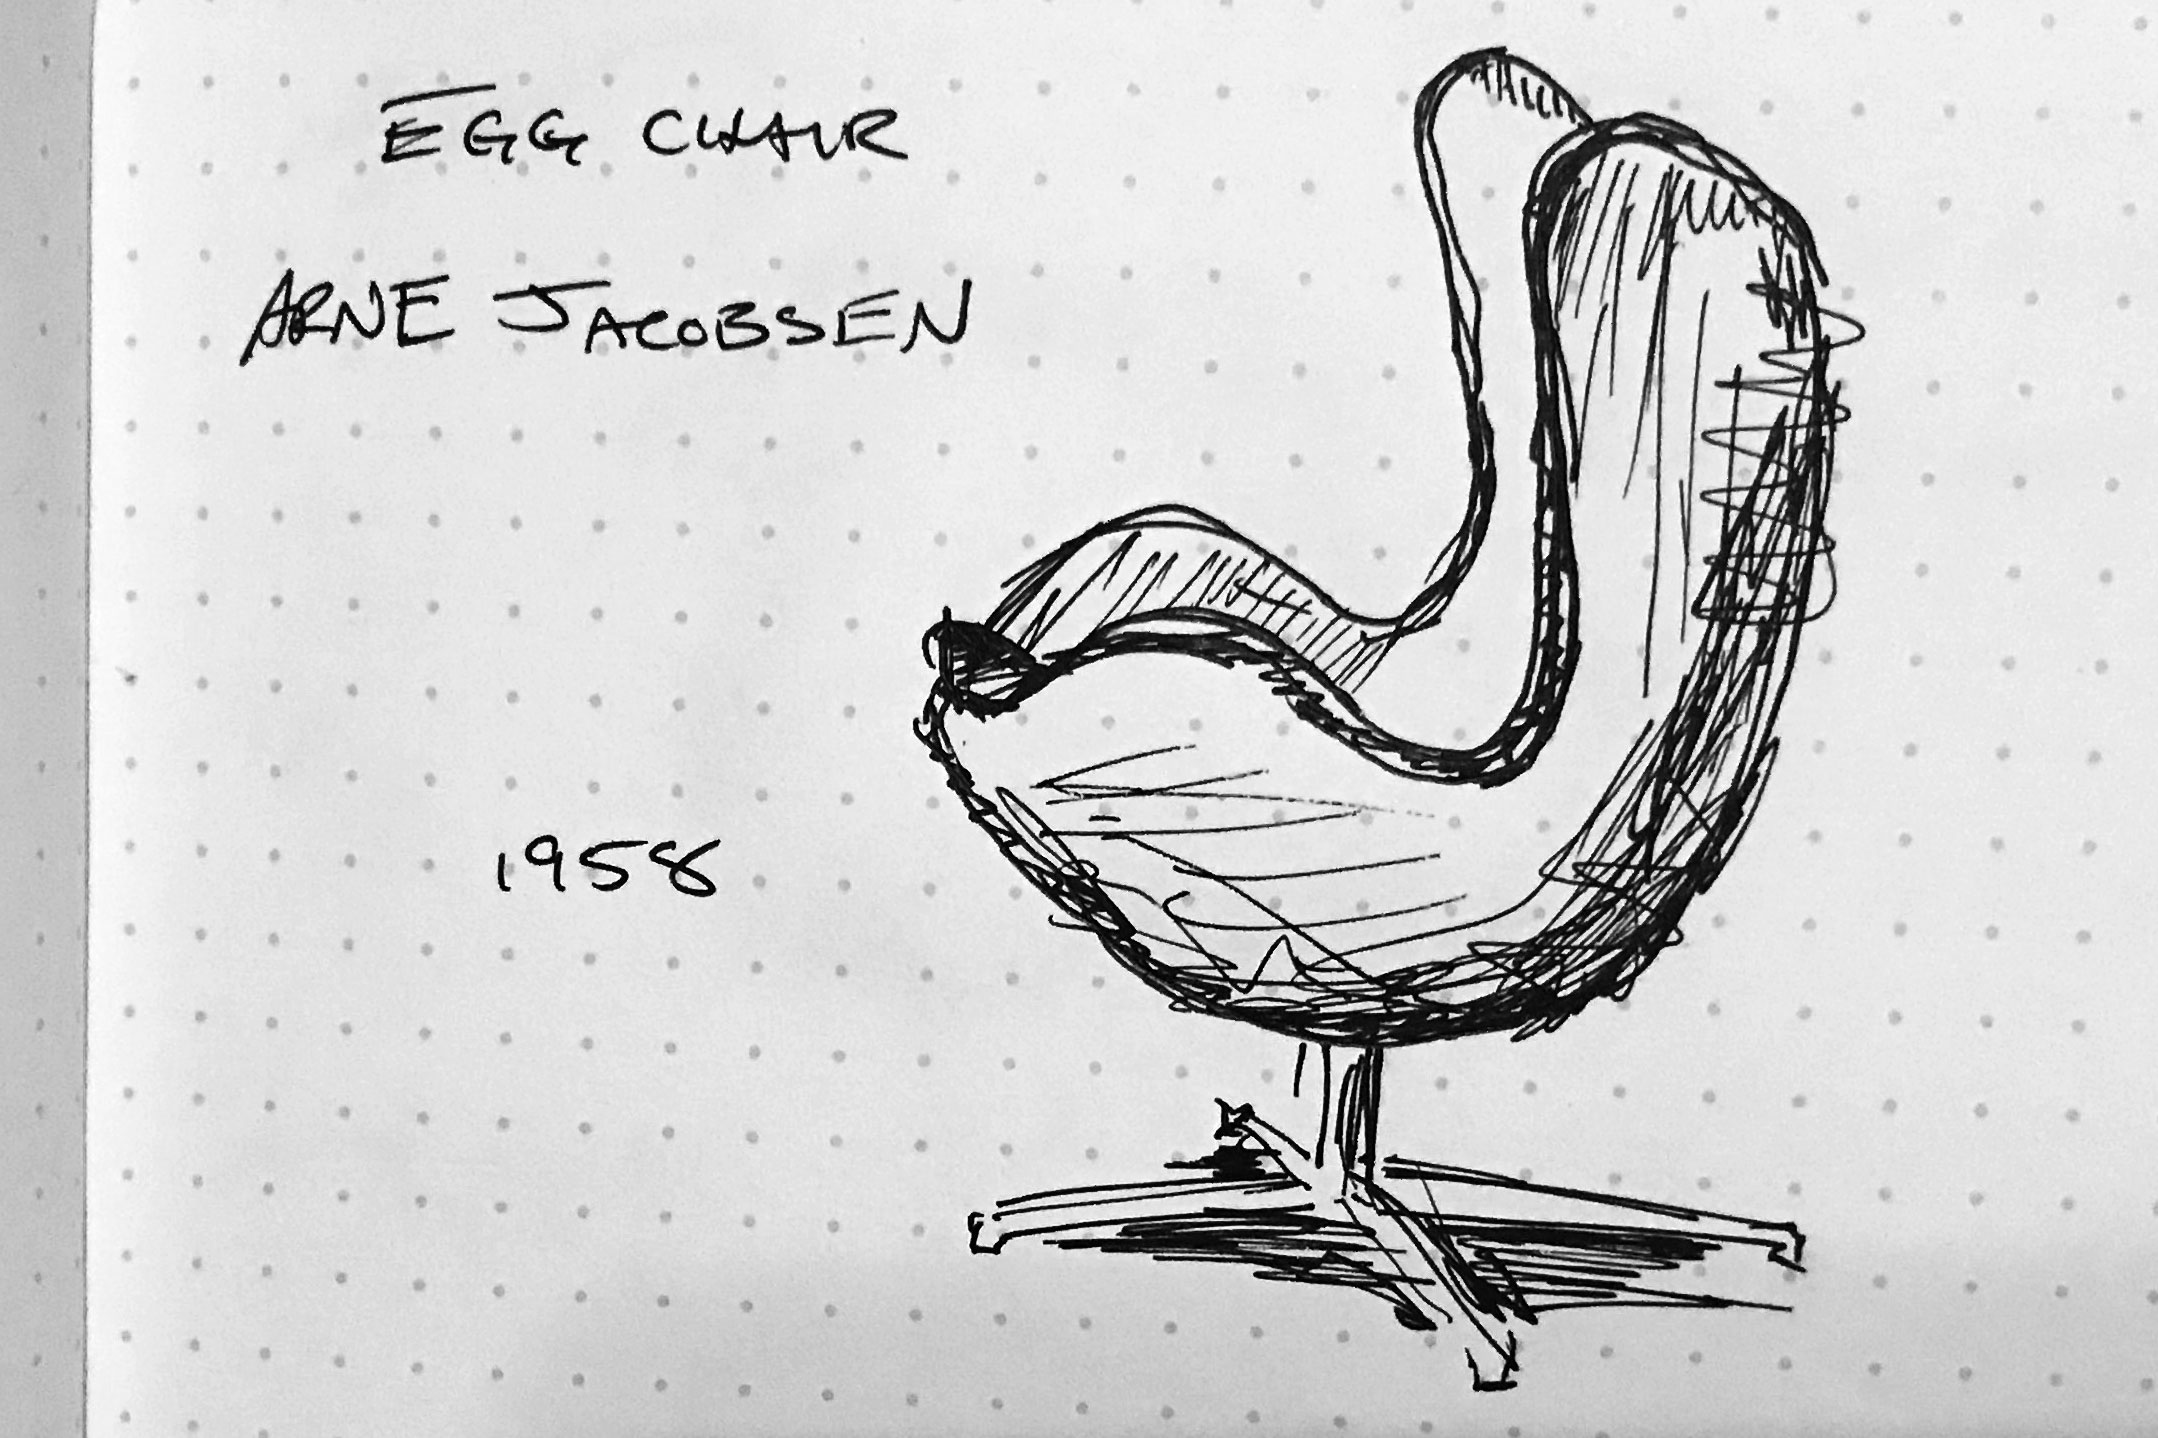 EGG CHAIR
ARNE JACOBSEN
1958